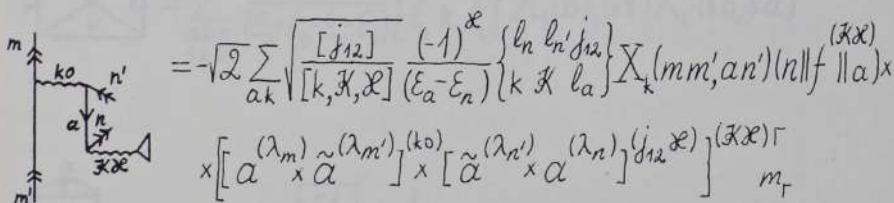 m
k0
n'
a
n
𝒦ϰ
m'
= -√2 ∑_{ak} √([j₁₂]/[k, 𝒦, ϰ]) (-1)^ϰ/(ε_a - ε_n) {l_n l_{n'} j₁₂ / k 𝒦 l_a} X_k(mm', an')(n‖f^{(𝒦ϰ)}‖a)×
×[a^{(λ_m)} × ã^{(λ_{m'})}]^{(k0)} × [ã^{(λ_{n'})} × a^{(λ_n)}]^{(j₁₂ϰ)}]^{(𝒦ϰ)Γ}_{m_Γ}